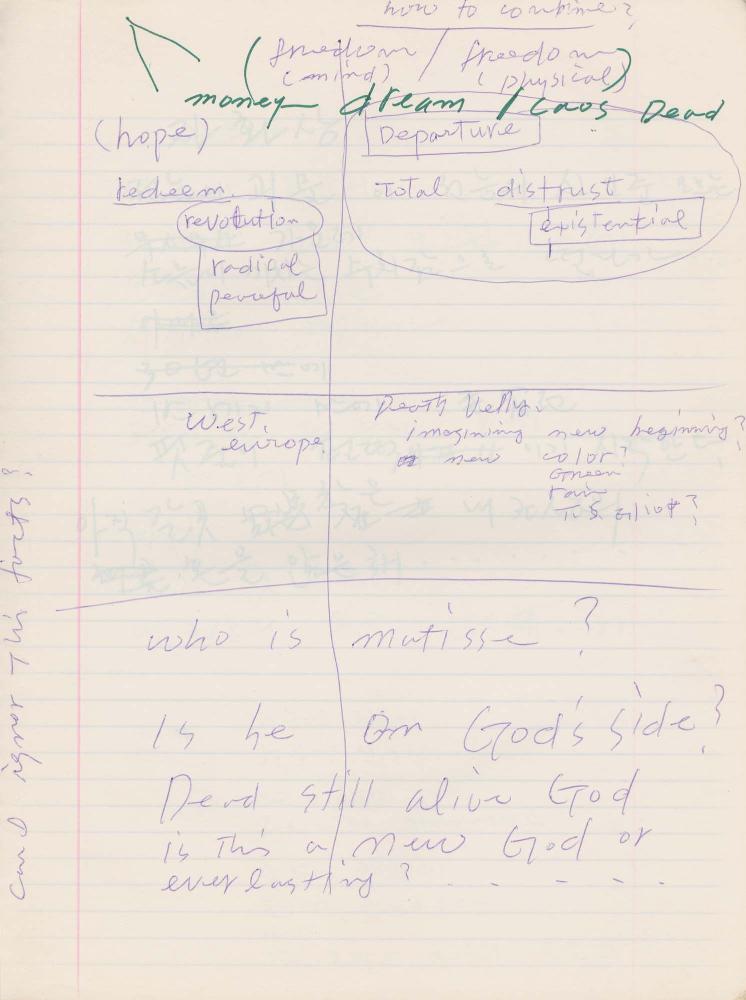 how to combine?
(freedom / freedom)
(mind) (physical)
money dream / caos Dead
(hope) Departure
redeem. Total distrust
revolution existential
radical
peaceful
West. Death Velly.
europe imagining new beginning?
new color?
Green
rain
T.S. Eliot?
who is matisse?
Is he on God's side?
Dead still alive God
is this a new God or
everlasting? . - - - .
can I ignor this facts?
아직 잘못 내